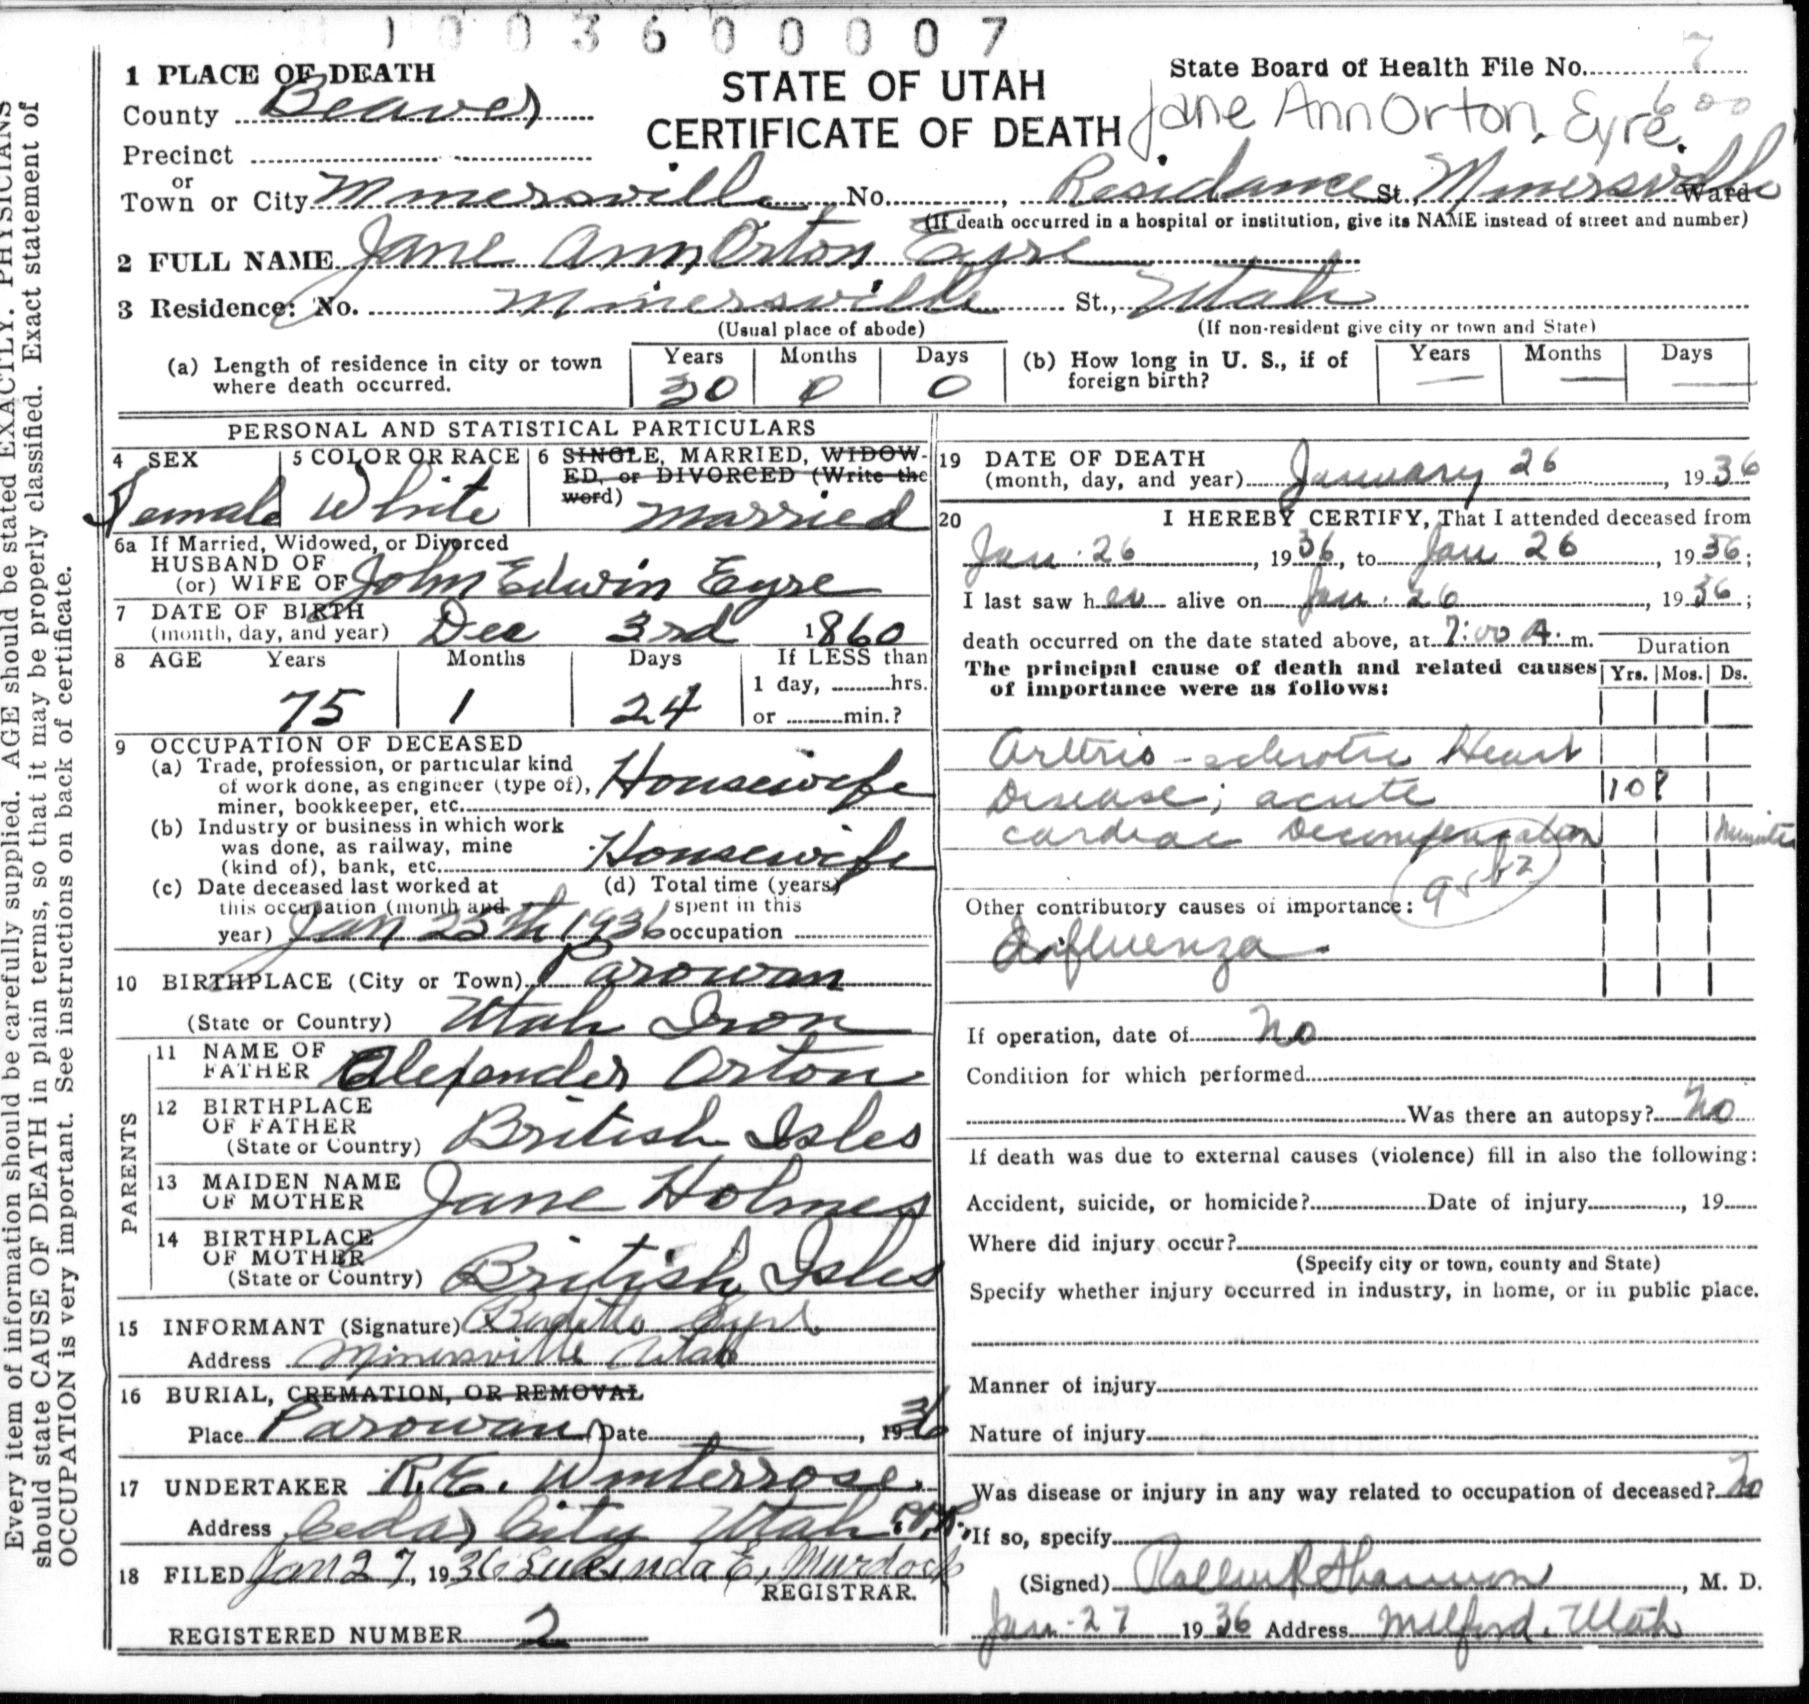 1003600007
1 PLACE OF DEATH
County Beaver
Precinct
or
Town or City Minersville No. , Residance St., Minersville Ward
STATE OF UTAH
CERTIFICATE OF DEATH
State Board of Health File No. 7
600
Jane Ann Orton Eyre.
(If death occurred in a hospital or institution, give its NAME instead of street and number)
2 FULL NAME Jane Ann Orton Eyre
3 Residence: No. Minersville St., Utah
(Usual place of abode) (If non-resident give city or town and State)
(a) Length of residence in city or town where death occurred.
Years Months Days
30 0 0
(b) How long in U. S., if of foreign birth?
Years Months Days
— — —
PERSONAL AND STATISTICAL PARTICULARS
4 SEX
Female
5 COLOR OR RACE
White
6 SINGLE, MARRIED, WIDOW-
ED, or DIVORCED (Write the
word)
Married
6a If Married, Widowed, or Divorced
HUSBAND OF
(or) WIFE OF John Edwin Eyre
7 DATE OF BIRTH
(month, day, and year) Dec 3rd 1860
8 AGE Years Months Days If LESS than
1 day, hrs.
or min.?
75 1 24
9 OCCUPATION OF DECEASED
(a) Trade, profession, or particular kind
of work done, as engineer (type of),
miner, bookkeeper, etc. Housewife
(b) Industry or business in which work
was done, as railway, mine
(kind of), bank, etc. Housewife
(c) Date deceased last worked at
this occupation (month and
year) Jan 25th 1936
(d) Total time (years)
spent in this
occupation
10 BIRTHPLACE (City or Town) Parowan
(State or Country) Utah Iron
PARENTS
11 NAME OF
FATHER Alexander Orton
12 BIRTHPLACE
OF FATHER
(State or Country) British Isles
13 MAIDEN NAME
OF MOTHER Jane Holmes
14 BIRTHPLACE
OF MOTHER
(State or Country) British Isles
15 INFORMANT (Signature) Eyre
Address Minersville Utah
16 BURIAL, CREMATION, OR REMOVAL
Place Parowan Date , 1936
17 UNDERTAKER R. E. Winterrose.
Address Cedar City Utah
18 FILED Jan 27, 1936 Lucinda E. Murdock
REGISTRAR.
REGISTERED NUMBER 2
19 DATE OF DEATH
(month, day, and year) January 26, 1936
20 I HEREBY CERTIFY, That I attended deceased from
Jan. 26, 1936, to Jan 26, 1936;
I last saw her alive on Jan. 26, 1936;
death occurred on the date stated above, at 7:00 A. m.
The principal cause of death and related causes
of importance were as follows:
Duration
Yrs. Mos. Ds.
Arterio-sclerotic Heart
Disease; acute 10?
cardiac Decompensation Minutes
95b2
Other contributory causes of importance:
Influenza
If operation, date of No
Condition for which performed
Was there an autopsy? No
If death was due to external causes (violence) fill in also the following:
Accident, suicide, or homicide? Date of injury , 19
Where did injury occur?
(Specify city or town, county and State)
Specify whether injury occurred in industry, in home, or in public place.
Manner of injury
Nature of injury
Was disease or injury in any way related to occupation of deceased? No
If so, specify
(Signed) R Shannon, M. D.
Jan. 27 1936 Address Milford. Utah
Every item of information should be carefully supplied. AGE should be stated EXACTLY. PHYSICIANS
should state CAUSE OF DEATH in plain terms, so that it may be properly classified. Exact statement of
OCCUPATION is very important. See instructions on back of certificate.